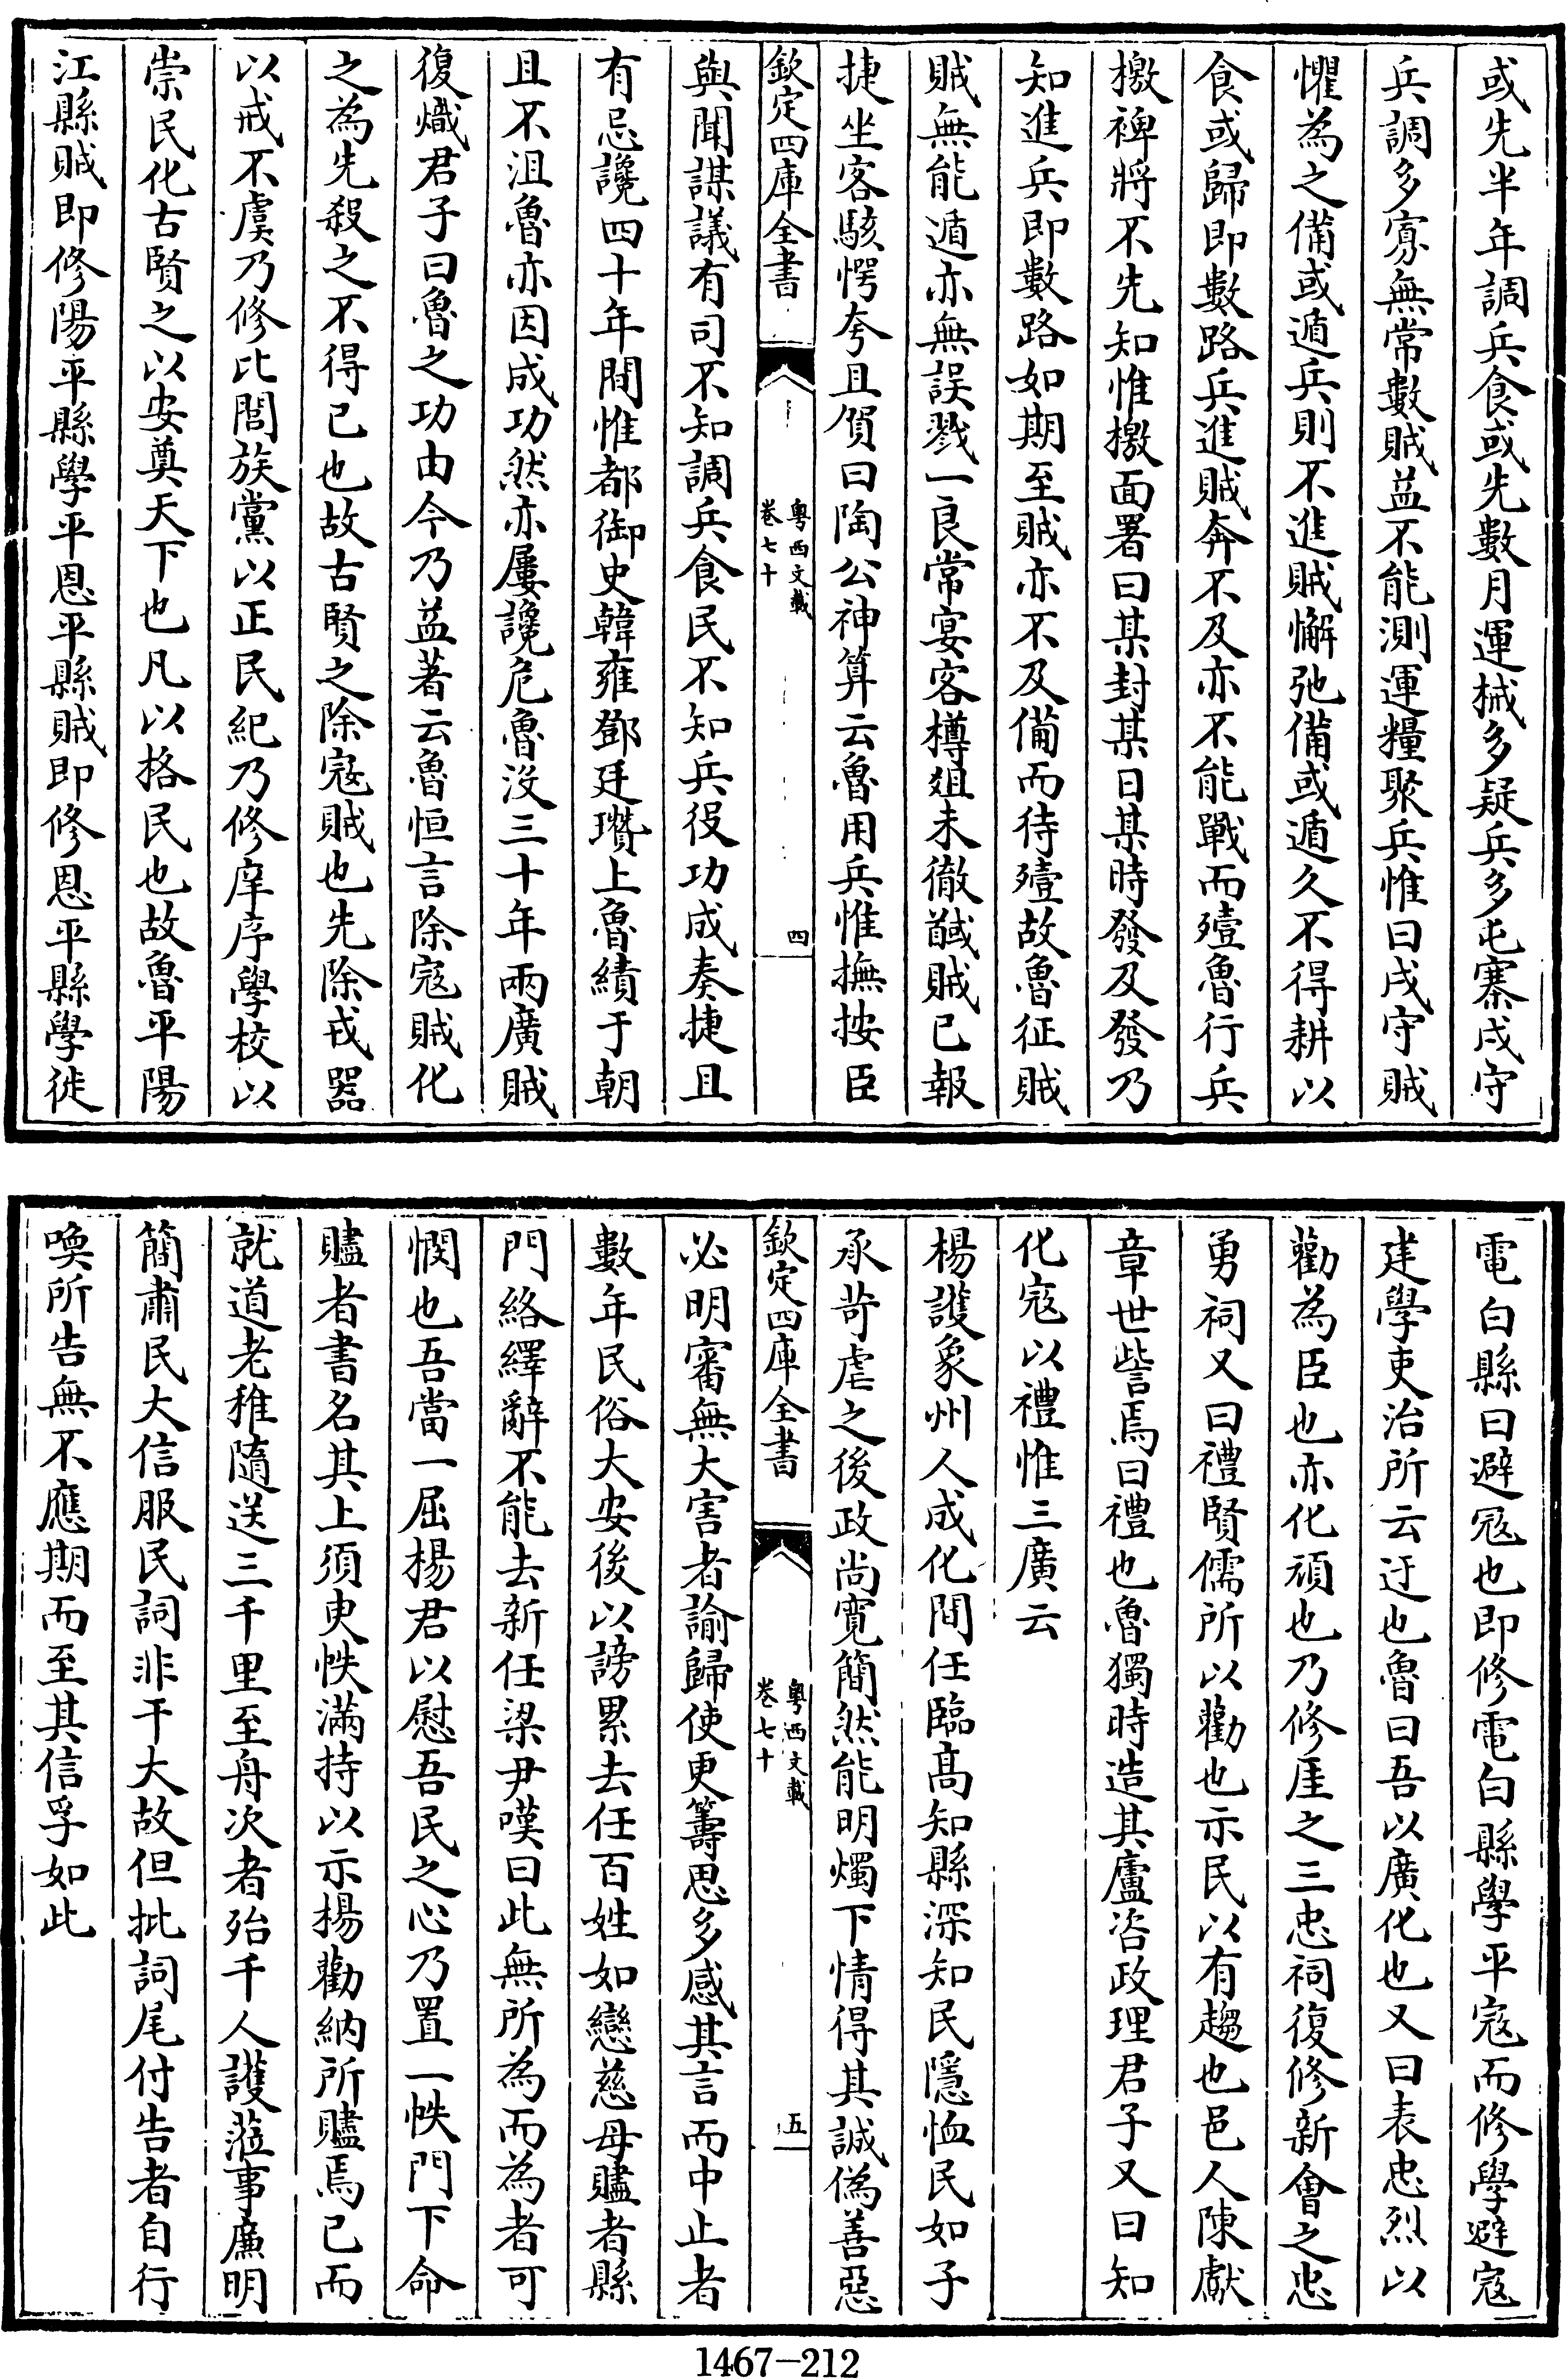 或先半年調兵食或先數月運械多疑兵多屯寨戍守
兵調多寡無常數賊益不能測運糧聚兵惟曰戍守賊
懼為之備或遁兵則不進賊懈弛備或遁久不得耕以
食或歸即數路兵進賊奔不及亦不能戰而殪魯行兵
檄裨將不先知惟檄面署曰某封某日某時發及發乃
知進兵即數路如期至賊亦不及備而待殪故魯征賊
賊無能遁亦無誤戮一良常宴客樽爼未徹馘賊已報
捷坐客駭愕夸且賀曰陶公神算云魯用兵惟撫按臣
欽定四庫全書
粵西文載
卷七十
四
與聞謀議有司不知調兵食民不知兵役功成奏捷且
有忌讒四十年間惟都御史韓雍鄧廷瓚上魯績于朝
且不沮魯亦因成功然亦屢讒危魯沒三十年兩廣賊
復熾君子曰魯之功由今乃益著云魯恒言除寇賊化
之為先殺之不得已也故古賢之除寇賊也先除戎器
以戒不虞乃修比閭族黨以正民紀乃修庠序學校以
崇民化古賢之以安奠天下也凡以格民也故魯平陽
江縣賊即修陽平縣學平恩平縣賊即修恩平縣學徙
電白縣曰避冦也即修電白縣學平寇而修學避寇
建學吏治所云迂也魯曰吾以廣化也又曰表忠烈以
勸為臣也亦化頑也乃修厓之三忠祠復修新會之忠
勇祠又曰禮賢儒所以勸也示民以有趨也邑人陳獻
章世訾焉曰禮也魯獨時造其廬咨政理君子又曰知
化寇以禮惟三廣云
楊護象州人成化間任臨高知縣深知民隱恤民如子
承苛虐之後政尚寛簡然能明燭下情得其誠偽善惡
欽定四庫全書
粵西文載
卷七十
五
必明審無大害者諭歸使更籌思多感其言而中止者
數年民俗大安後以謗累去任百姓如戀慈母贐者縣
門絡繹辭不能去新任梁尹嘆曰此無所為而為者可
憫也吾當一屈楊君以慰吾民之心乃置一帙門下命
贐者書名其上須臾帙滿持以示楊勸納所贐焉已而
就道老稚隨送三千里至舟次者殆千人護蒞事廉明
簡肅民大信服民詞非干大故但批詞尾付告者自行
喚所告無不應期而至其信孚如此
1467-212